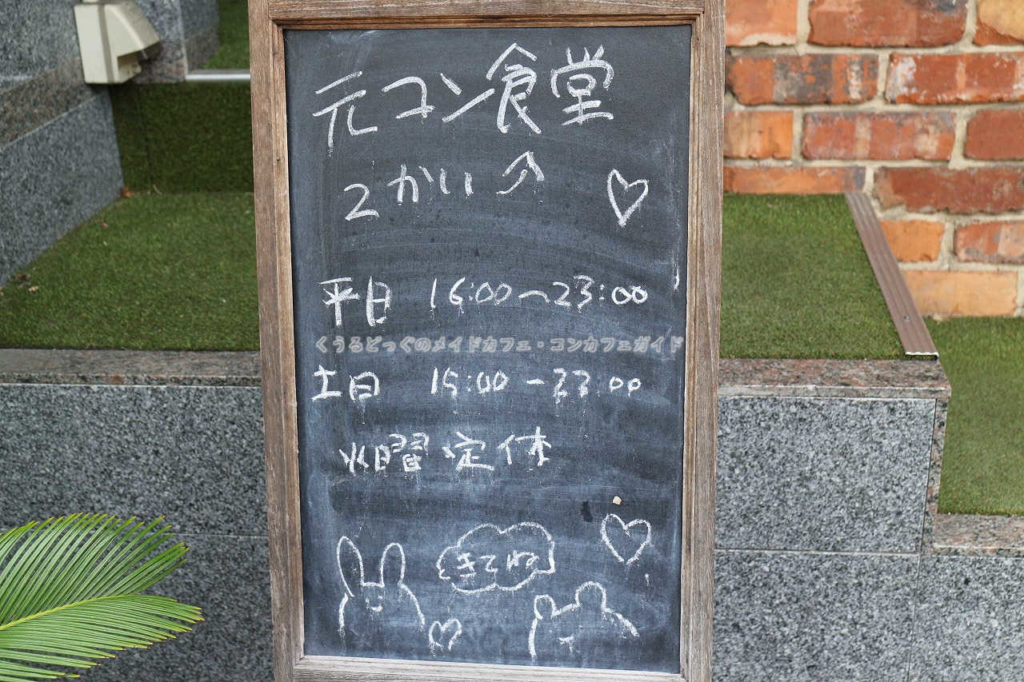 元コン食堂
2かい↗
♡
平日 16:00〜23:00
くうるどっぐのメイドカフェ・コンカフェガイド
土日 15:00-23:00
水曜定休
きてね